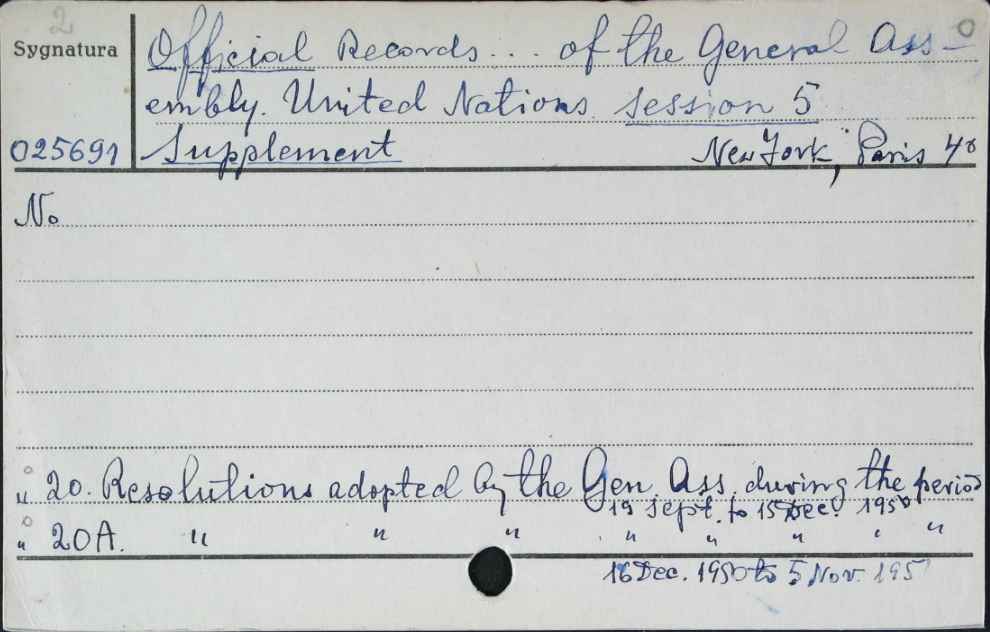 2
Sygnatura
Official Records ... of the General Ass-
embly. United Nations. session 5
025691 Supplement New York, Paris 4°
No
" 20. Resolutions adopted by the Gen. Ass. during the period
19 sept. to 15 Dec. 1950
" 20A. " " " " " " " "
16 Dec. 1950 to 5 Nov. 195